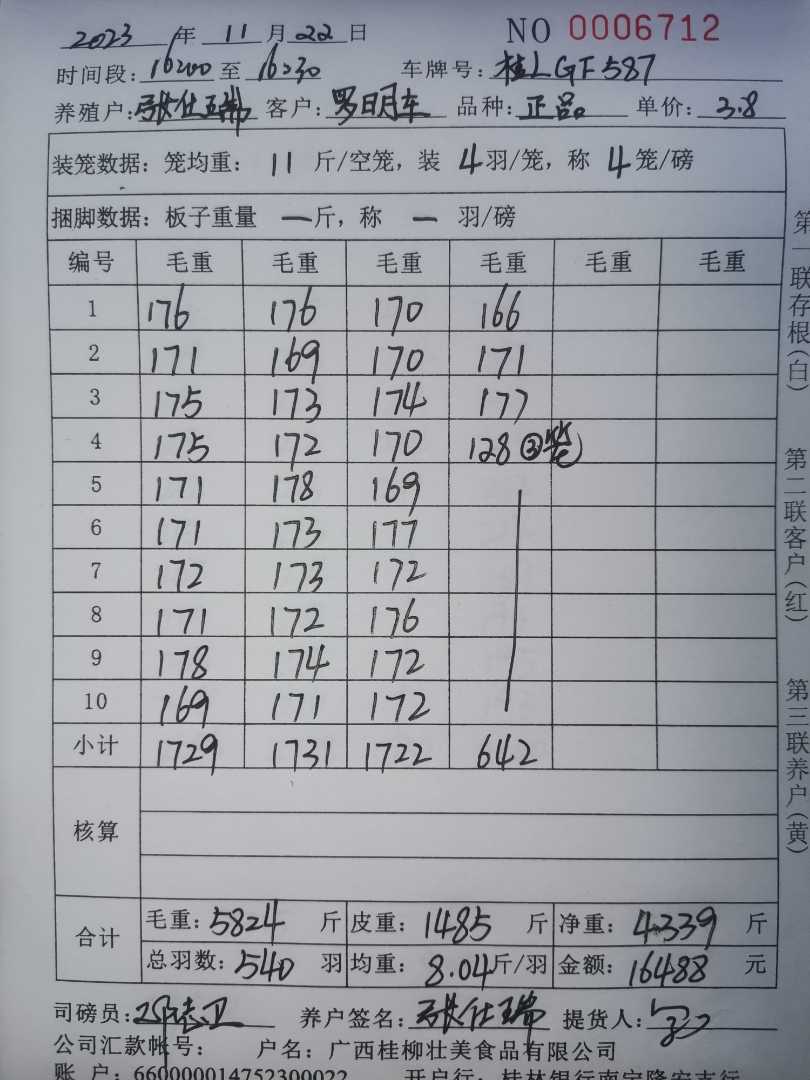 2023年11月22日 NO 0006712
时间段:16:00至16:30 车牌号:桂LGF587
养殖户:张仕瑞 客户:罗日月车 品种:正品 单价:3.8
装笼数据:笼均重:11斤/空笼,装4羽/笼,称4笼/磅
捆脚数据:板子重量一斤,称一羽/磅
编号 毛重 毛重 毛重 毛重 毛重 毛重
1 176 176 170 166
2 171 169 170 171
3 175 173 174 177
4 175 172 170 128③笼
5 171 178 169
6 171 173 177
7 172 173 172
8 171 172 176
9 178 174 172
10 169 171 172
小计 1729 1731 1722 642
核算
合计 毛重:5824斤 皮重:1485斤 净重:4339斤
总羽数:540羽 均重:8.04斤/羽 金额:16488元
司磅员: 养户签名:张仕瑞 提货人:
公司汇款帐号: 户名:广西桂柳壮美食品有限公司
账户:660000014752300022 开户行:桂林银行南宁隆安支行
第一联存根(白) 第二联客户(红) 第三联养户(黄)